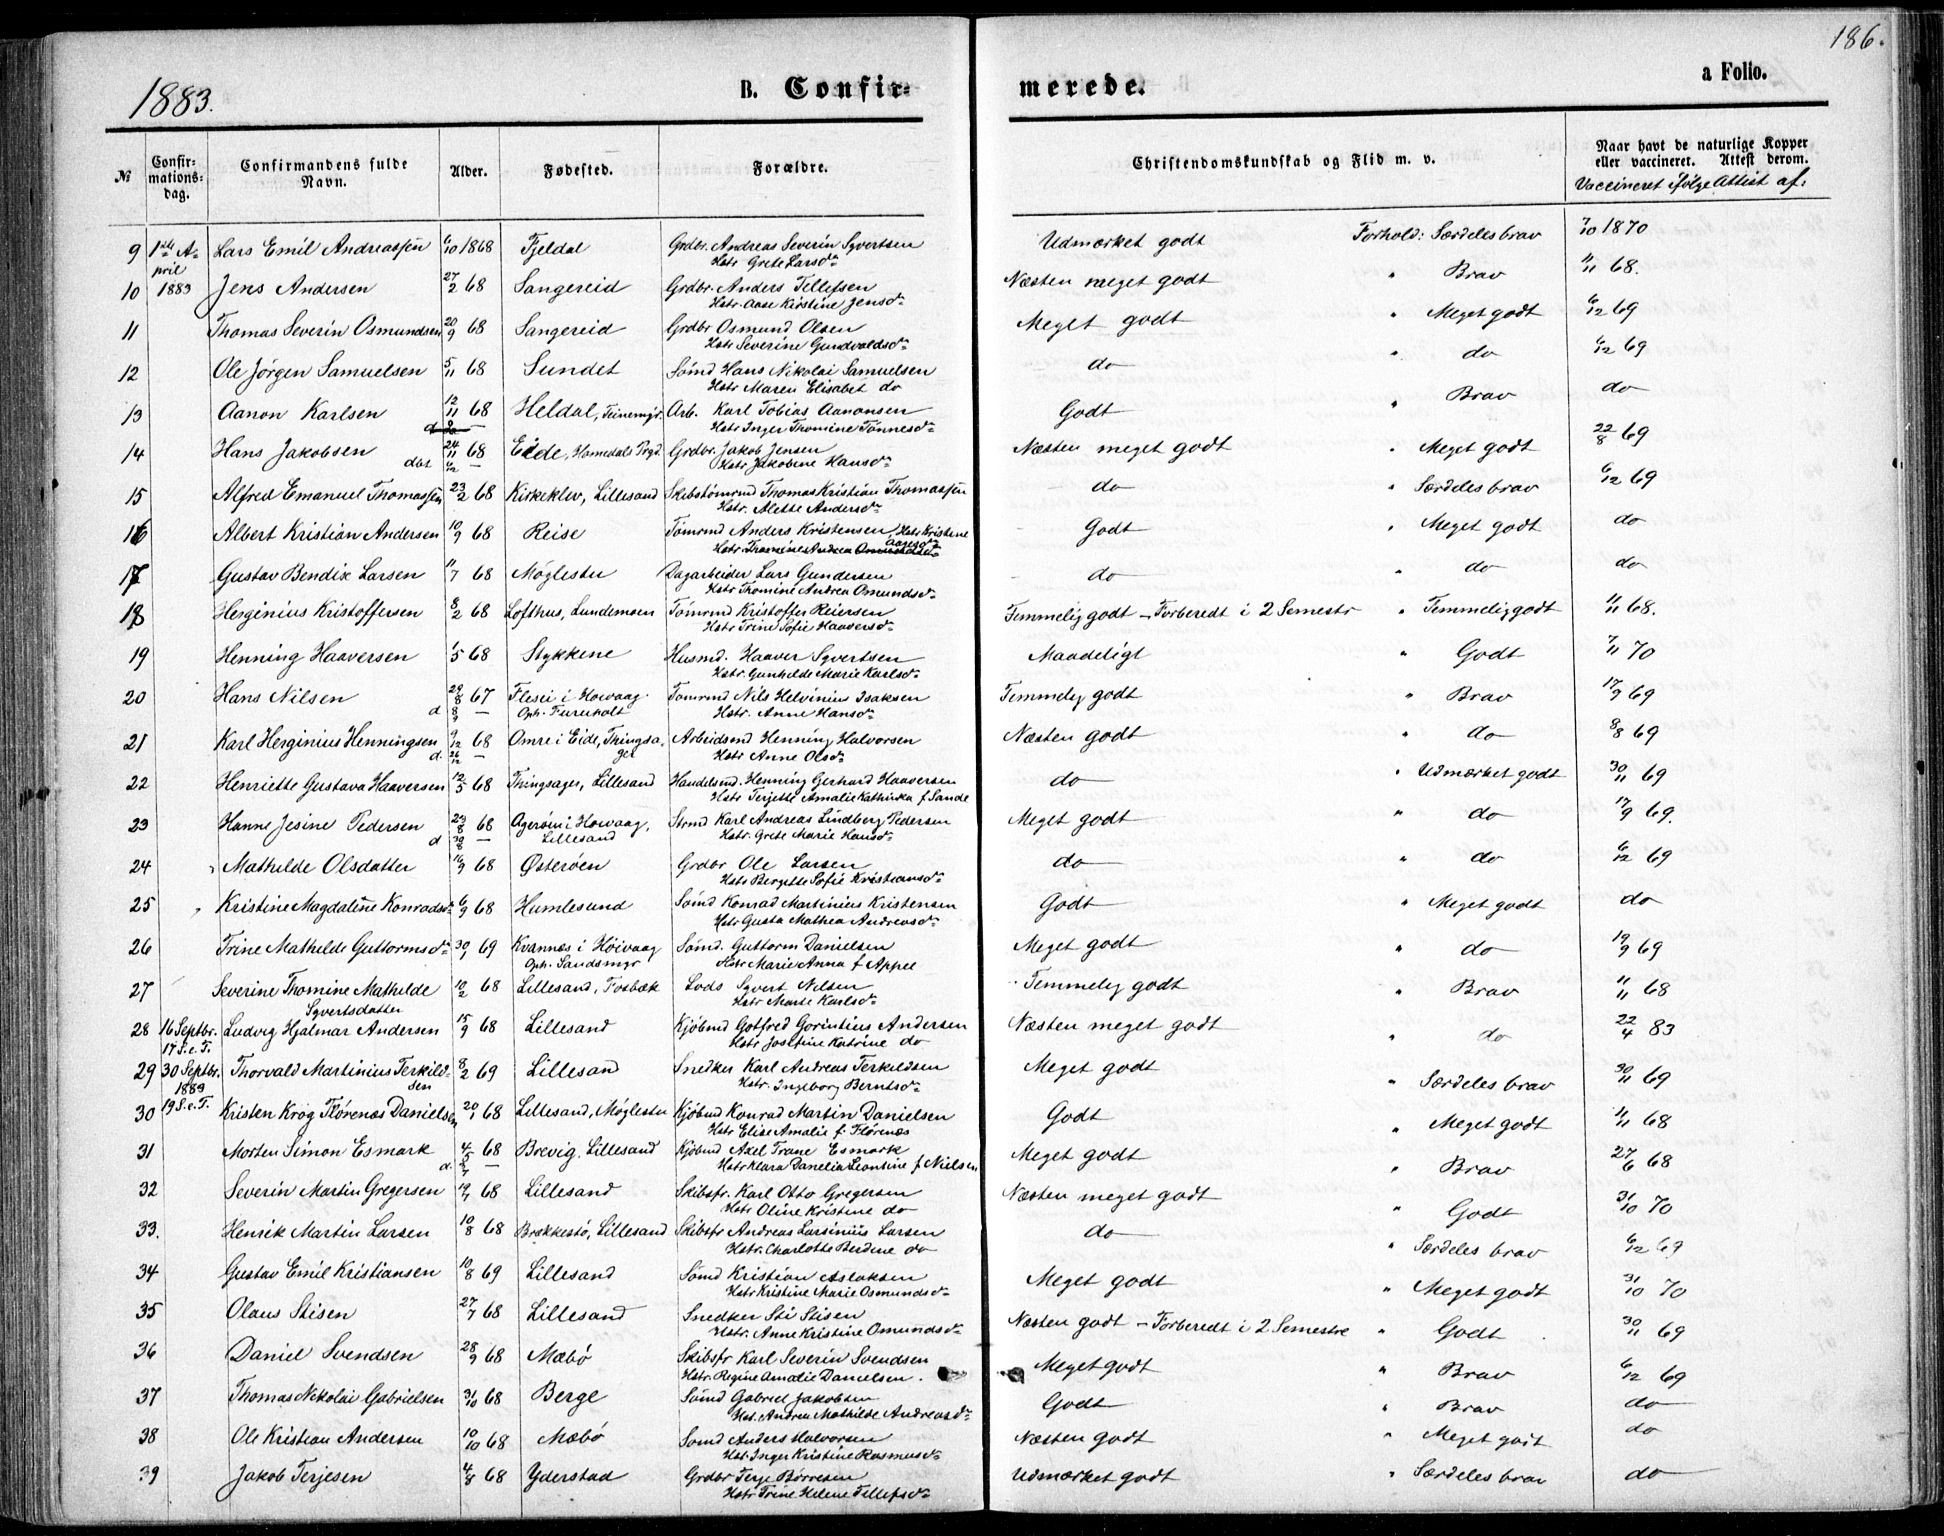 186.
1883. B. Confirmerede. a Folio.
№ | Confirmationsdag. | Confirmandens fulde Navn. | Alder. | Fødested. | Forældre. | Christendomskundskab og Flid m. v. | Naar havt de naturlige Kopper eller vaccineret. Attest derom.
Vaccineret ifølge Attist af:
9 1ste April 1883 Lars Emil Andreassen 6/10 1868 Fjeldal Grdbr. Andreas Severin Syvertsen Udmærket godt Forhold: Særdeles brav 7/10 1870
Hstr Grete Larsdr
10 Jens Andersen 27/2 68 Sangereid Grdbr. Anders Tellefsen Næsten meget godt " Brav 11/11 68.
Hstr Aase Kirstine Jensdr
11 Thomas Severin Osmundsen 20/9 68 Sangereid Grdbr Osmund Olsen Meget godt " Meget godt 6/12 69
Hstr Severine Gundvaldsdr
12 Ole Jørgen Samuelsen 5/11 68 Sundet Sømd Hans Nikolai Samuelsen do " do 6/12 69
Hstr Maren Elisabet do
13 Aanon Karlsen 12/11 68 Heldal, Teinemyr. Arb. Karl Tobias Aanonsen Godt " Brav do
Hstr Inger Thomine Tønnesdr
14 Hans Jakobsen 24/11 68 Eide, Homedals Prgd. Grdbr. Jakob Jensen Næsten meget godt " Meget godt 22/8 69
dbt 6/12 — Hstr Jakobine Hansdr
15 Alfred Emanuel Thomassen 23/2 68 Kirkeklev, Lillesand Skibstømrmd Thomas Kristian Thomassen do " Særdeles brav 6/12 69
Hstr. Alette Andersdr
16 Albert Kristian Andersen 10/9 68 Reise Tømrmd Anders Kristensen, Hstr Kristine Godt " Meget godt do
17 Gustav Bendix Larsen 11/7 68 Møglestu Dagarbeider Lars Gundersen do " do do
Hstr Thomine Andrea Osmundsdr
18 Herginius Kristoffersen 8/2 68 Lofthus, Lundemoen Tømrmd Kristoffer Reiersen Temmelig godt — Forberedt i 2 Semestr " Temmelig godt 11/11 68.
Hstr Trine Sofie Haaversdr
19 Henning Haaversen 1/5 68 Stykkene Husmd. Haaver Syvertsen Maadeligt " Godt 7/11 70
Hstr. Gunhilde Marie Karlsdr
20 Hans Nilsen 29/8 67 Flesei i Høivaag. Tømrmd Nils Helvinius Isaksen Temmelig godt " Brav 17/9 69
d 8/9 — Oph. Furuholt Hstr. Anne Hansdr
21 Karl Herginius Henningsen 9/12 68 Omre i Eide, Thingsager Arbeidsmd Henning Halvorsen Næsten godt " do 8/8 69
d. 26/12 — Hstr Anne Olsdr
22 Henriette Gustava Haaversen 12/5 68 Thingsager, Lillesand Handelsmd. Henning Gerhard Haaversen do " Udmærket godt 30/11 69
Hstr Terjette Amalie Kathinka f Sande
23 Hanne Jesine Pedersen 23/8 68 Agerøen i Høivaag, Strmd Karl Andreas Lindberg Pedersen Meget godt " do 17/9 69.
d 30/8 — Lillesand Hstr. Grete Marie Hansdr
24 Mathilde Olsdatter 16/9 68 Østerøen Grdbr Ole Larsen do " do 6/12 69
Hstr Bergitte Sofie Kristiansdr
25 Kristine Magdaline Konradsdr 6/9 68 Humlesund Sømd Konrad Martinius Kristensen Godt " Meget godt do
Hstr Gusta Mathea Andreasdr
26 Trine Mathilde Guttormsdr 30/1 69 Kvannes i Høivaag Sømd. Guttorm Danielsen Meget godt " do 19/9 69
Oph. Sandsmyr Hstr Marie Anna f Appel
27 Severine Thomine Mathilde 10/2 68 Lillesand, Fosbæk Lods Syvert Nilsen Temmelig godt " Brav 11/11 68
Syvertsdatter Hstr Marte Karlsdr
28 16 Septbr. Ludvig Hjalmar Andersen 15/9 68 Lillesand Kjøbmd Gotfred Gorintius Andersen Næsten meget godt " do 22/4 83
17 S. e. T. Hstr Josefine Katrine do
29 30 Septbr. Thorvald Martinius Terkildsen 8/2 69 Lillesand Snedker Karl Andreas Terkildsen Meget godt " Særdeles brav 30/11 69
1883 Hstr. Ingeborg Berntsdr
30 19 S. e. T. Kristen Krog Flørenæs Danielsen 20/1 68 Lillesand, Møglestu Kjøbmd Konrad Martin Danielsen Godt " Meget godt 11/11 68
Hstr Elise Amalie f. Flørenæs
31 Morten Simon Esmark 4/5 68 Brevig, Lillesand Kjøbmd Axel Trane Esmark Meget godt " Brav 27/6 68
d. — Hstr Klara Danelia Leontine f Nielsen
32 Severin Martin Gregersen 19/1 68 Lillesand Skibsfr. Karl Otto Gregersen Næsten meget godt " Godt 31/10 70
Hstr Oline Kristine do
33. Henrik Martin Larsen 10/8 68 Brækkestø, Lillesand Skibsfr Andreas Larsinius Larsen do " Særdeles brav 6/12 69
Hstr. Charlotte Berdine do
34 Gustav Emil Kristiansen 10/8 69 Lillesand Sømd Kristian Aslaksen Meget godt " Meget godt 31/10 70
Hstr Kristine Marie Osmundsdr
35 Olaus Stisen 27/7 68 Lillesand Snedker Sti Stisen Næsten godt — Forberedt i 2 Semestre " Godt 30/11 69
Hstr. Anne Kristine Omundsdr
36 Daniel Svendsen 28/9 68 Mæbø Skibsfr Karl Severin Svendsen Meget godt " Brav 6/12 69
Hstr. Regine Amalie Danielsen.
37 Thomas Nikolai Gabrielsen 31/10 68 Berge Sømd Gabriel Jakobsen Godt " Brav do
Hst. Andrea Mathilde Andreasdr
38 Ole Kristian Andersen 10/10 68 Mæbø Sømd Anders Halvorsen Næsten godt " Meget godt do
Hstr Inger Kristine Rasmusdr
39 Jakob Terjesen 4/8 68 Yderstad Grdbr Terje Børresen Udmærket godt " Særdeles brav do
Hstr Trine Helene Tellefsdr